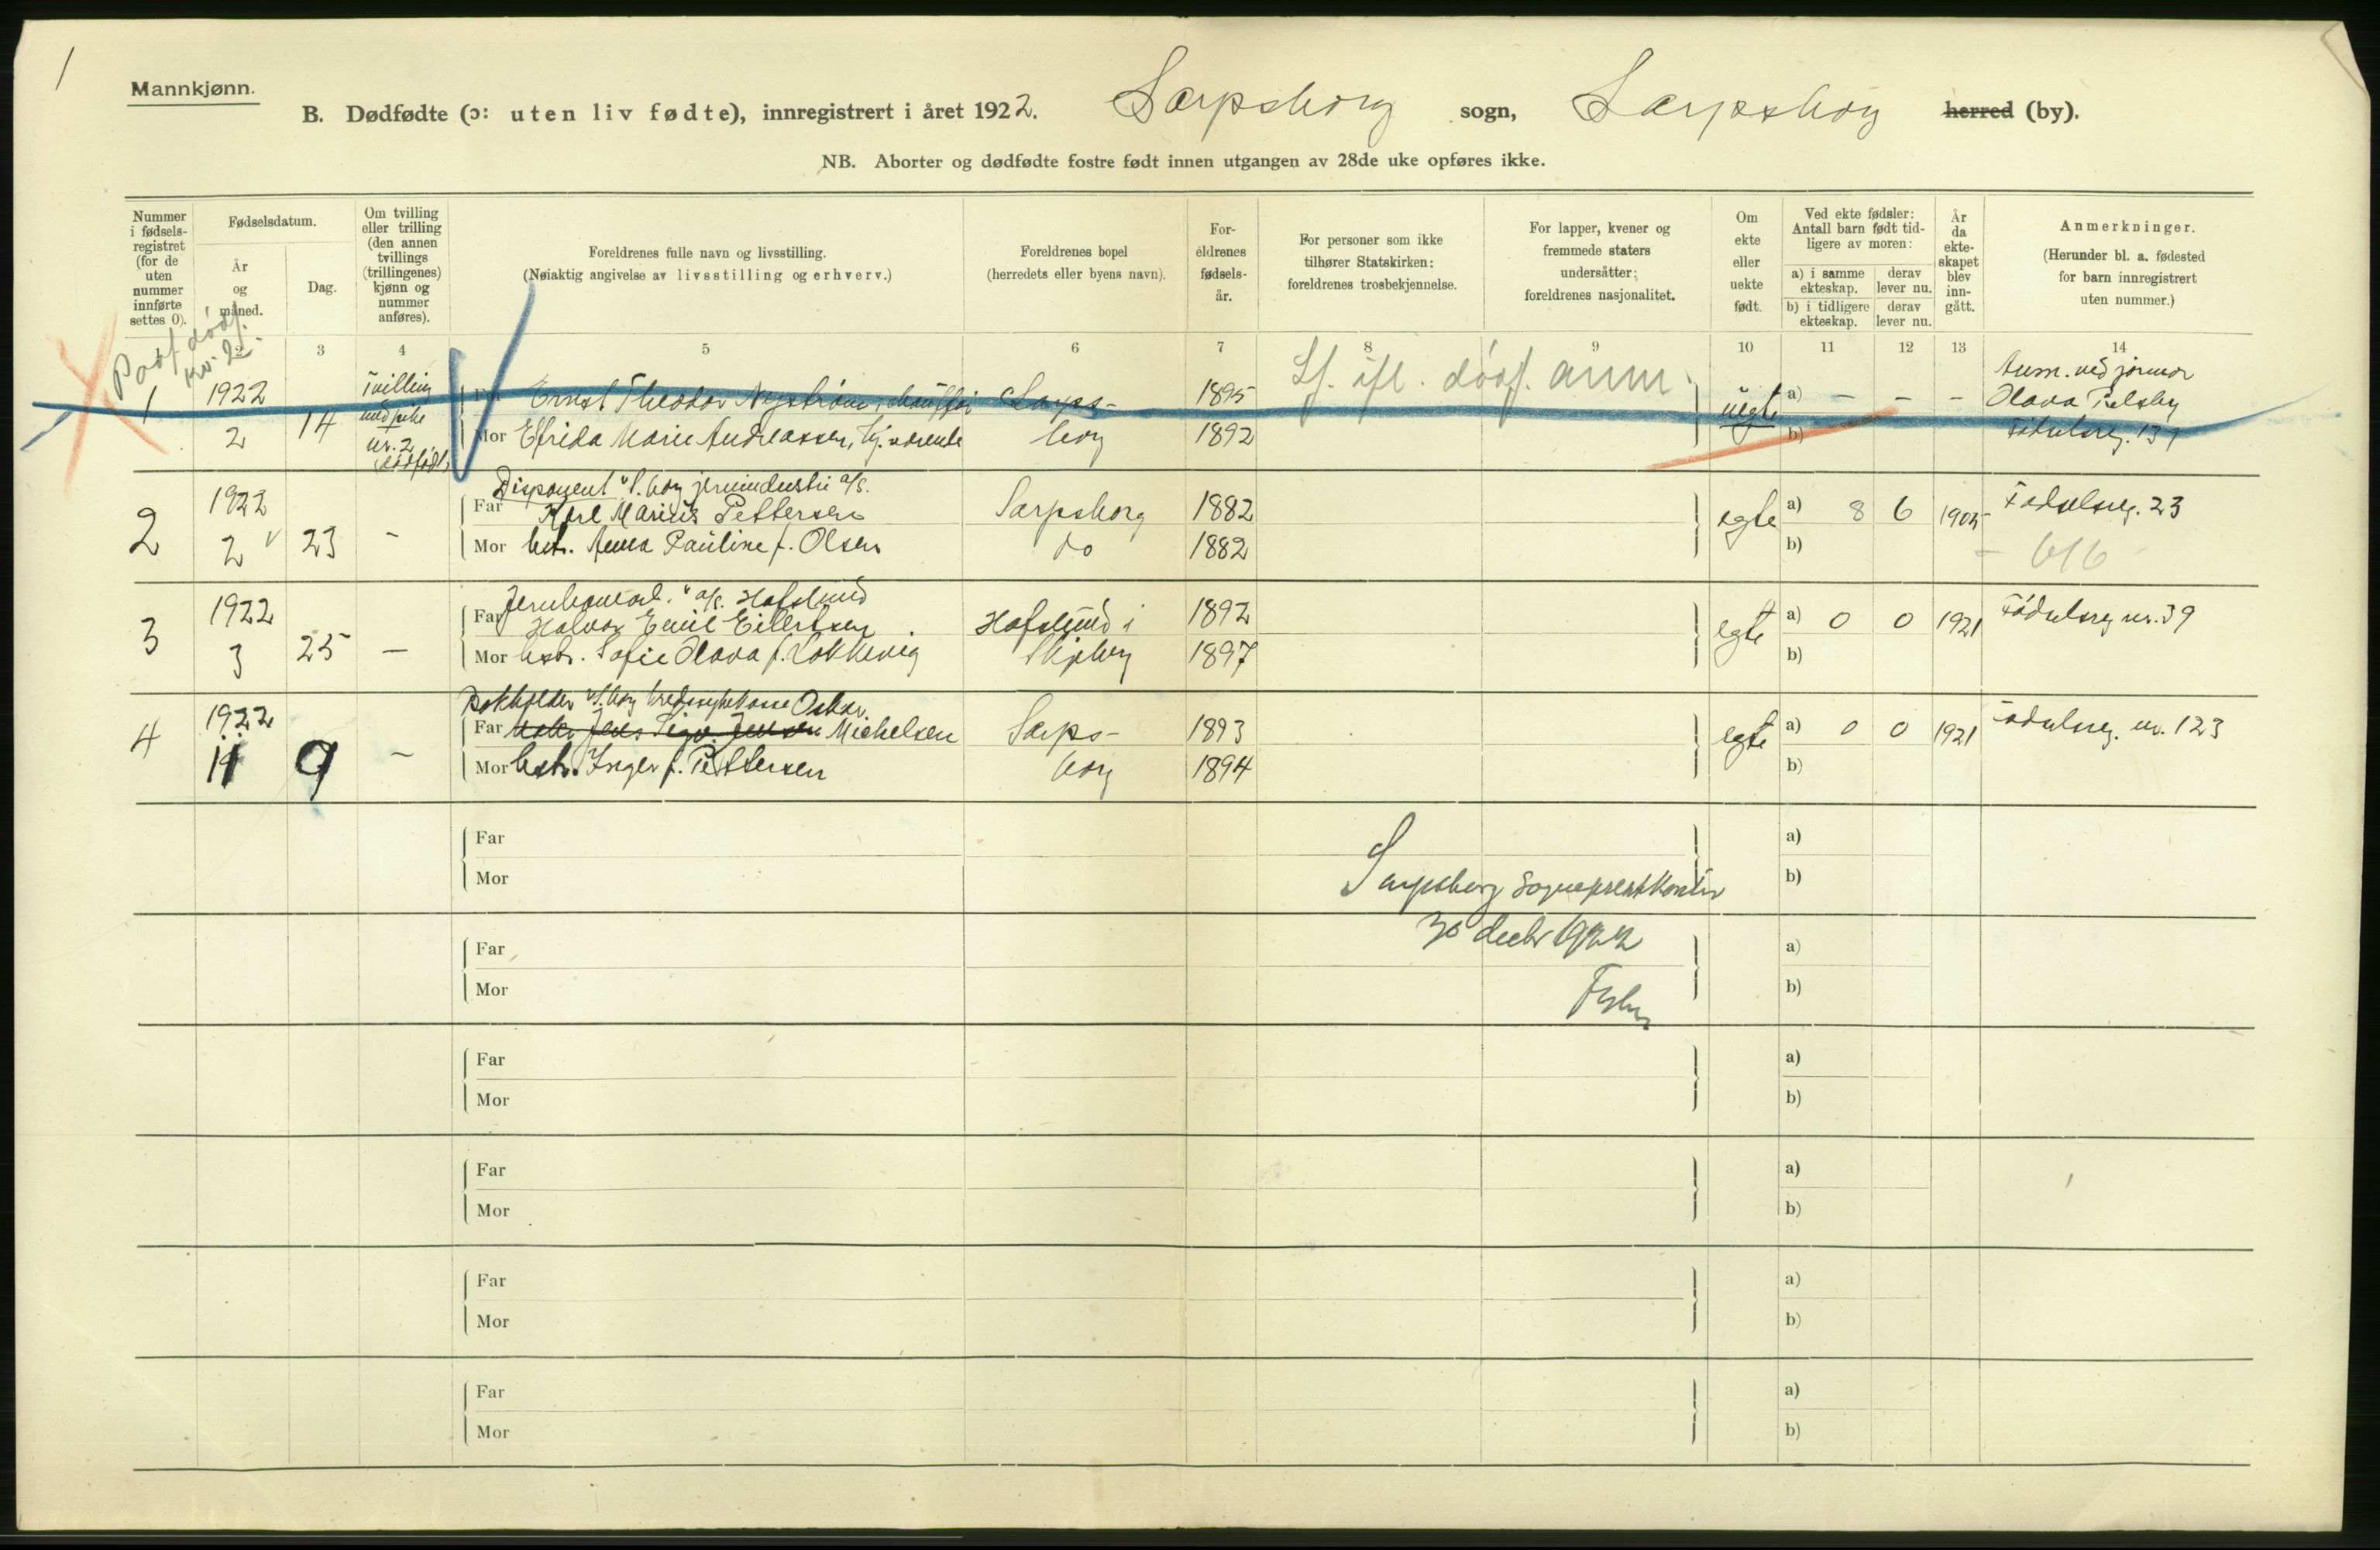 1
Mannkjønn.
B. Dødfødte (ɔ: uten liv fødte), innregistrert i året 1922. Sarpsborg sogn, Sarpsborg herred (by).
NB. Aborter og dødfødte fostre født innen utgangen av 28de uke opføres ikke.
Nummer i fødsels-registret (for de uten nummer innførte settes 0).
Fødselsdatum.
År og måned.
Dag.
Om tvilling eller trilling (den annen tvillings (trillingenes) kjønn og nummer anføres).
Foreldrenes fulle navn og livsstilling.
(Nøiaktig angivelse av livsstilling og erhverv.)
Foreldrenes bopel
(herredets eller byens navn).
For-eldrenes fødsels-år.
For personer som ikke tilhører Statskirken: foreldrenes trosbekjennelse.
For lapper, kvener og fremmede staters undersåtter; foreldrenes nasjonalitet.
Om ekte eller uekte født.
Ved ekte fødsler: Antall barn født tid-ligere av moren:
a) i samme ekteskap.
derav lever nu.
b) i tidligere ekteskap.
derav lever nu.
År da ekte-skapet blev inn-gått.
Anmerkninger.
(Herunder bl. a. fødested for barn innregistrert uten nummer.)
1 2 3 4 5 6 7 8 9 10 11 12 13 14
1 1922 2 14 Tvilling med pike nr. 2 dødfødt
Far Ernst Theodor Nystrøm, chauffør Sarps- 1895
Mor Elfrida Marie Andreassen, borg 1892
uegte a) – – –
b)
Anm. ved jormor
Olava
Fødselsreg. 139
2 1922 2 23 –
Disponent v. S.borg jernindustri a/s.
Far Karl Marius Pettersen Sarpsborg 1882
Mor hstr. Anna Pauline f. Olsen do 1882
egte a) 8 6 1905
b)
Fødselsreg. 23
3 1922 3 25 –
a/s. Hafslund
Far Halvor Emil Eilertsen Hafslund i 1892
Mor hstr. Sofie Olava f. Løkkevig Skjeberg 1897
egte a) 0 0 1921
b)
Fødselsreg nr. 39
4 1922 11 9 –
Bokholder v. S.borg kredssykekasse Oskar
Far Jens Sigv. Jensen Michelsen Sarps- 1893
Mor hstr. Inger f. Pettersen borg 1894
egte a) 0 0 1921
b)
Fødselsreg. nr. 123
Far a)
Mor b)
Sarpsborg Sogneprestkontor
30 decbr 1922
Far a)
Mor b)
Far a)
Mor b)
Far a)
Mor b)
Far a)
Mor b)
Far a)
Mor b)